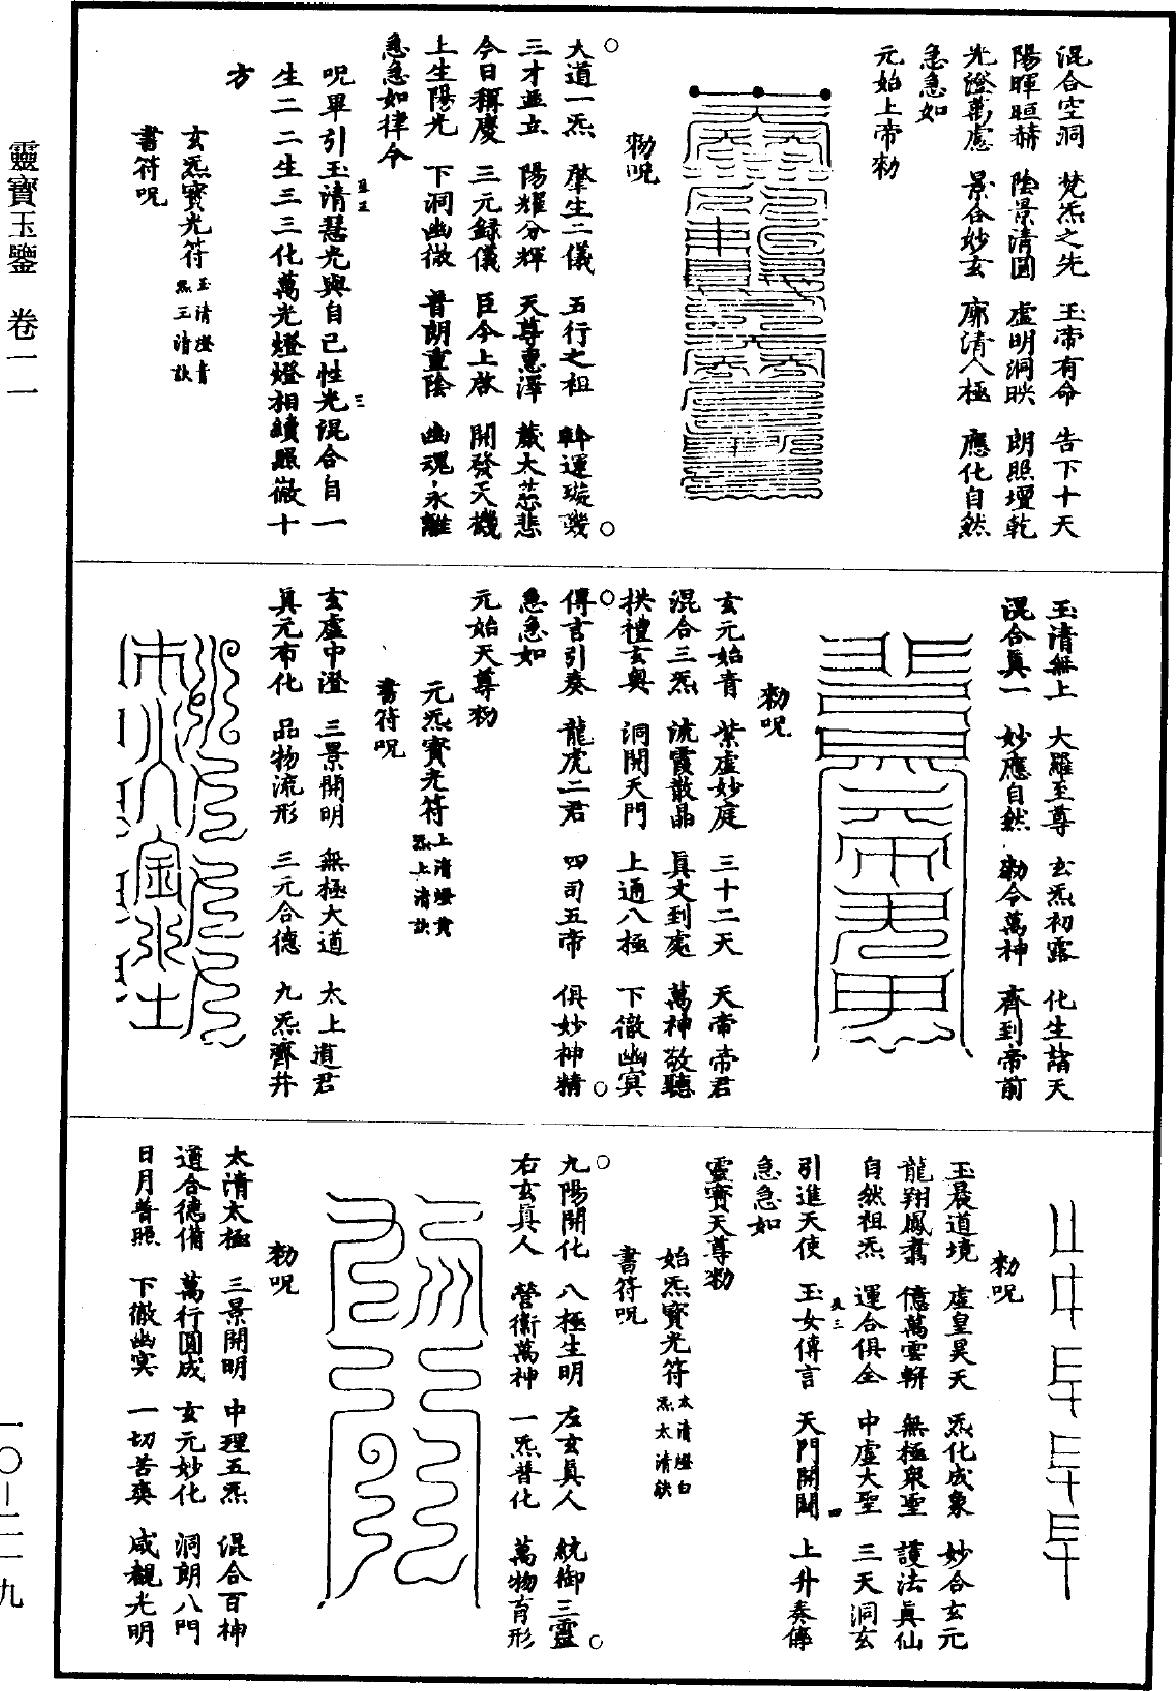 混合空洞　梵炁之先　玉帝有命　告下十天
陽暉晅赫　陰景清圓　虛明洞映　朗照壇乾
光澄萬慮　景合妙玄　廓清八極　應化自然
急急如
元始上帝勑
勑呪
大道一炁　肇生二儀　五行之祖　斡運璇璣
三才並立　陽耀分輝　天尊惠澤　蕆大慈悲
今日稱慶　三元錄儀　臣今上啓　開發天機
上生陽光　下洞幽微　普朗重陰　幽魂永離
急急如律令
呪畢引玉清慧光與自己性光混合自一
生二二生三三化萬光燈燈相續照徹十
方
玄炁寶光符 玉清燈青
炁玉清訣
書符呪
玉清無上　大羅至尊　玄炁初露　化生諸天
混合眞一　妙應自然　勑令萬神　齊到帝前
勑呪
玄元始青　紫虛妙庭　三十二天　天帝帝君
混合三炁　流霞散晶　眞文到處　萬神敬聽
拱禮玄奧　洞開天門　上通八極　下徹幽冥
傳言引奏　龍虎二君　四司五帝　俱妙神精
急急如
元始天尊勑
元炁寶光符 上清燈黃
炁上清訣
書符呪
玄虛中澄　三景開明　無極大道　太上道君
眞元布化　品物流形　三元合德　九炁齊并
木火金水土
勑呪
玉晨道境　虛皇昊天　炁化成象　妙合玄元
龍翔鳳翥　億萬雲輧　無極衆聖　護法眞仙
自然祖炁　運合俱全　中虛大聖　三天洞玄
引進天使　玉女傳言　天門開闢　上升奏傳
急急如
靈寶天尊勑
始炁寶光符 太清燈白
炁太清訣
書符呪
九陽開化　八極生明　左玄眞人　統御三靈
右玄眞人　營衛萬神　一炁普化　萬物育形
勑呪
太清太極　三景開明　中理五炁　混合百神
道合德備　萬行圓成　玄元妙化　洞朗八門
日月普照　下徹幽冥　一切苦爽　咸覩光明
靈寶玉鑒　卷二一
一〇—二一九